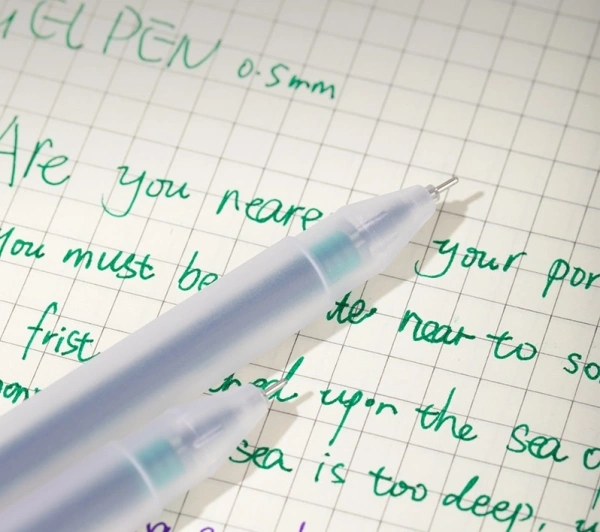 GEL PEN 0.5mm
Are you neare your por
You must be te near to so
frist
upon the sea o
sea is too deep